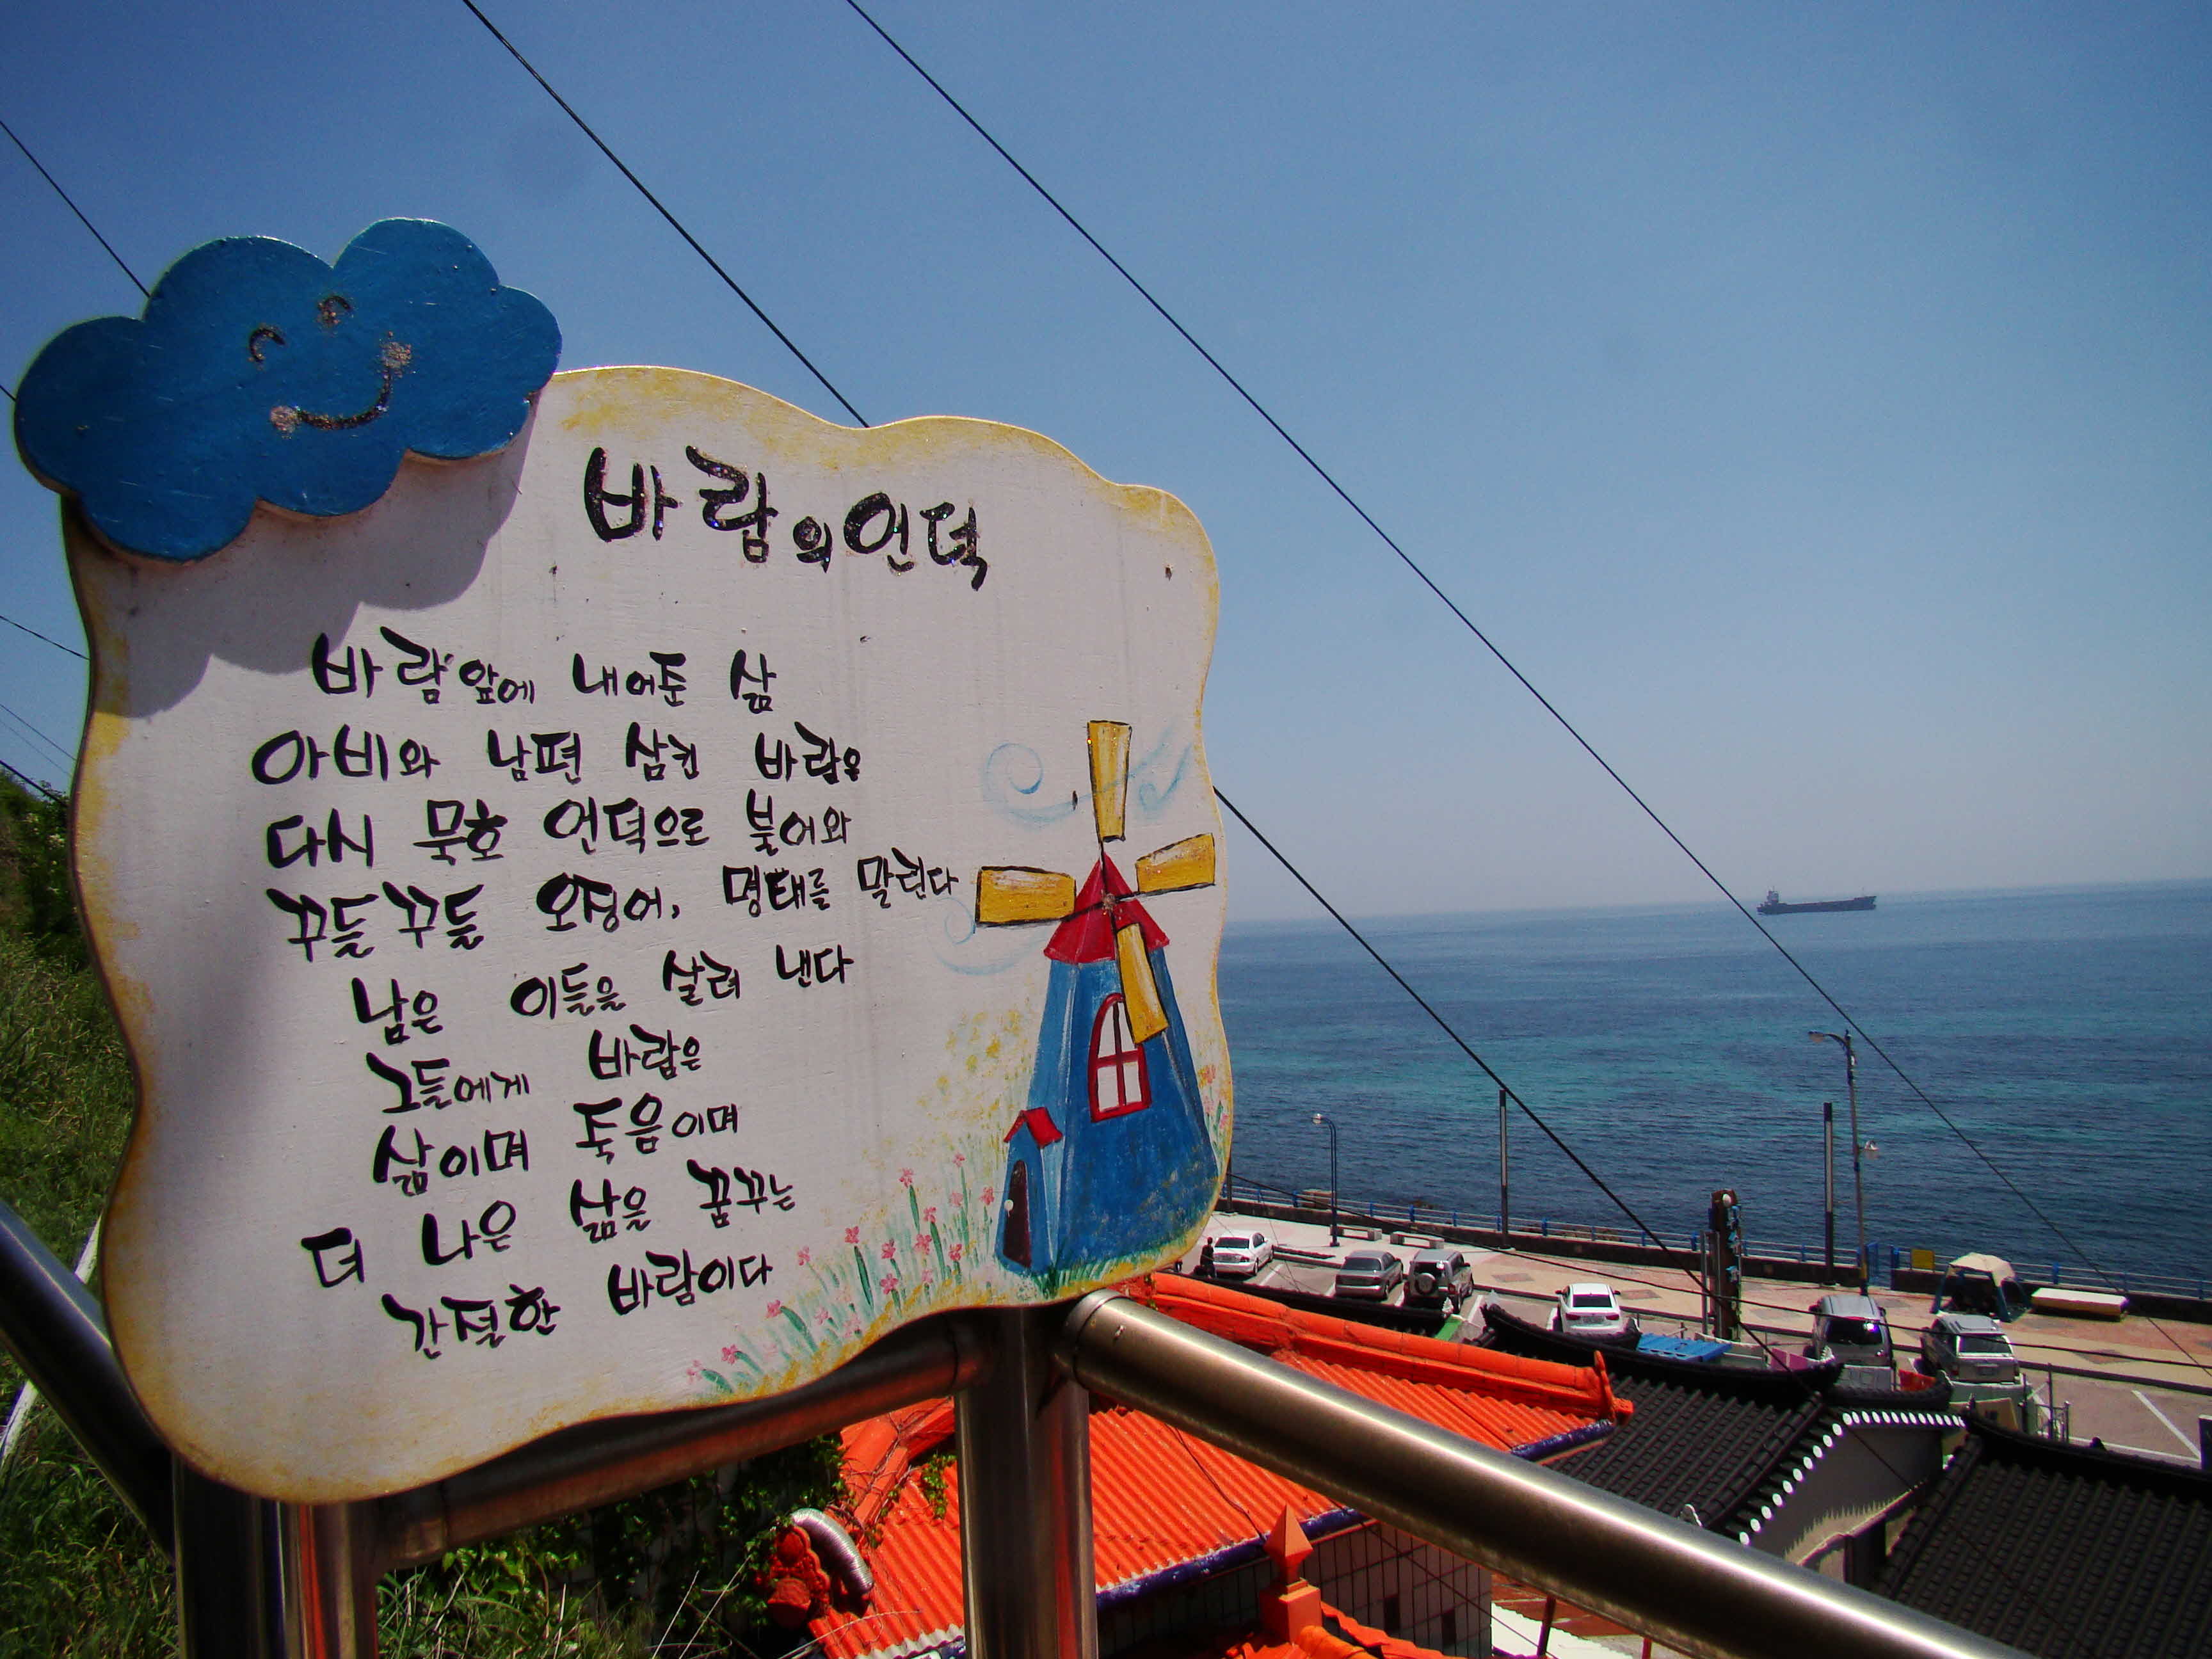 바람의언덕
바람앞에 내어둔 삶
아비와 남편 삼킨 바람은
다시 묵호 언덕으로 불어와
꾸들꾸들 오징어, 명태를 말린다
남은 이들을 살려 낸다
그들에게 바람은
삶이며 죽음이며
더 나은 삶을 꿈꾸는
간절한 바람이다